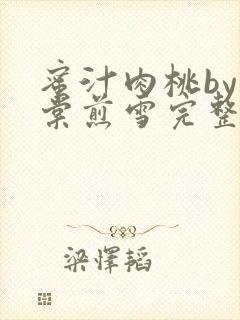 蜜汁肉桃by
棠煎雪完整
梁怿韬